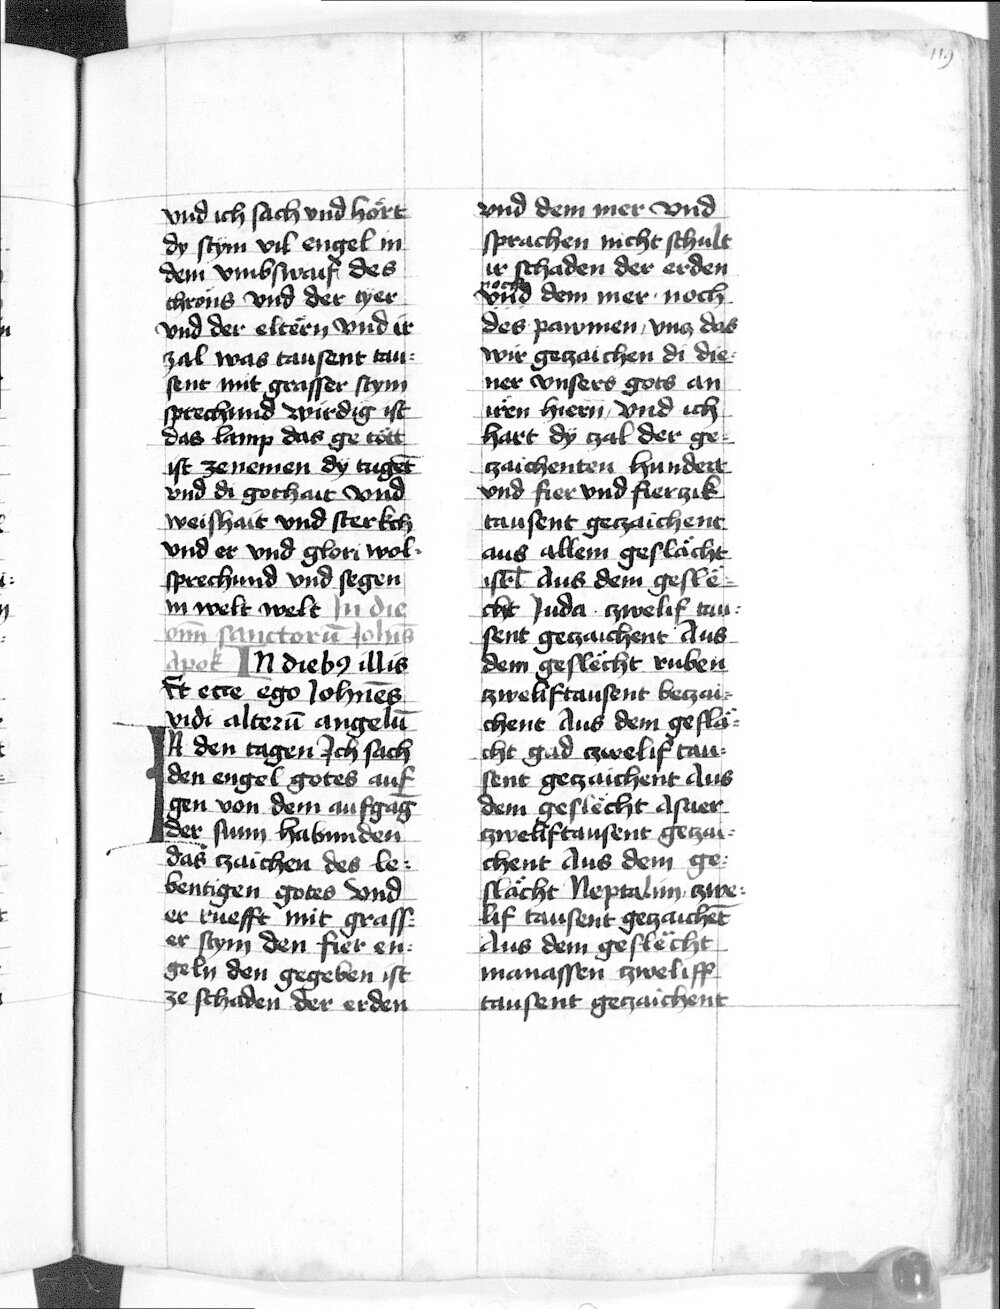 119
vnd ich sach vnd hört
dy stym vil engel in
dem vmbswaif des
throns vnd der tyer
vnd der eltern vnd ir
zal was tausent tau-
sent mit grasser stym
sprechund wirdig ist
das lamp das getött
ist ze nemen dy tugēt
vnd di gothait vnd
weishait vnd sterkch
vnd er vnd glori wol-
sprechund vnd segen
in welt welt In die
om̄ sanctorū Johīs
Apok IN dieb9 illis
Et ecce ego John̄es
vidi alterū angelū
IN den tagen Ich sach
den engel gotes auf
gen von dem aufgāg
der sunn habunden
das tzaichen des le-
bentigen gotes vnd
er ruefft mit grass-
er stym den fier en-
geln den gegeben ist
ze schaden der erden
vnd dem mer vnd
sprachen nicht schult
ir schaden der erden
noch
vnd dem mer noch
des pawmen vncz das
wir geczaichen di die-
ner vnsers gots an
iren hiern vnd ich
hart dÿ czal der ge-
czaichenten hundert
vnd fier vnd fierczik
tausent geczaichent
aus allem geslächt
isrl Aus dem geslë-
cht Juda czwelif tau-
sent geczaichent Aus
dem geslëcht ruben
czweliftausent beczai-
chent Aus dem geslä-
cht gad czwelif tau-
sent geczaichent Aus
dem geslëcht Asaer
czweliftausent geczai-
chent Aus dem ge-
slächt Neptalim czwe-
lif tausent geczaichēt
Aus dem geslëcht
manassen czweliff
tausent geczaichent